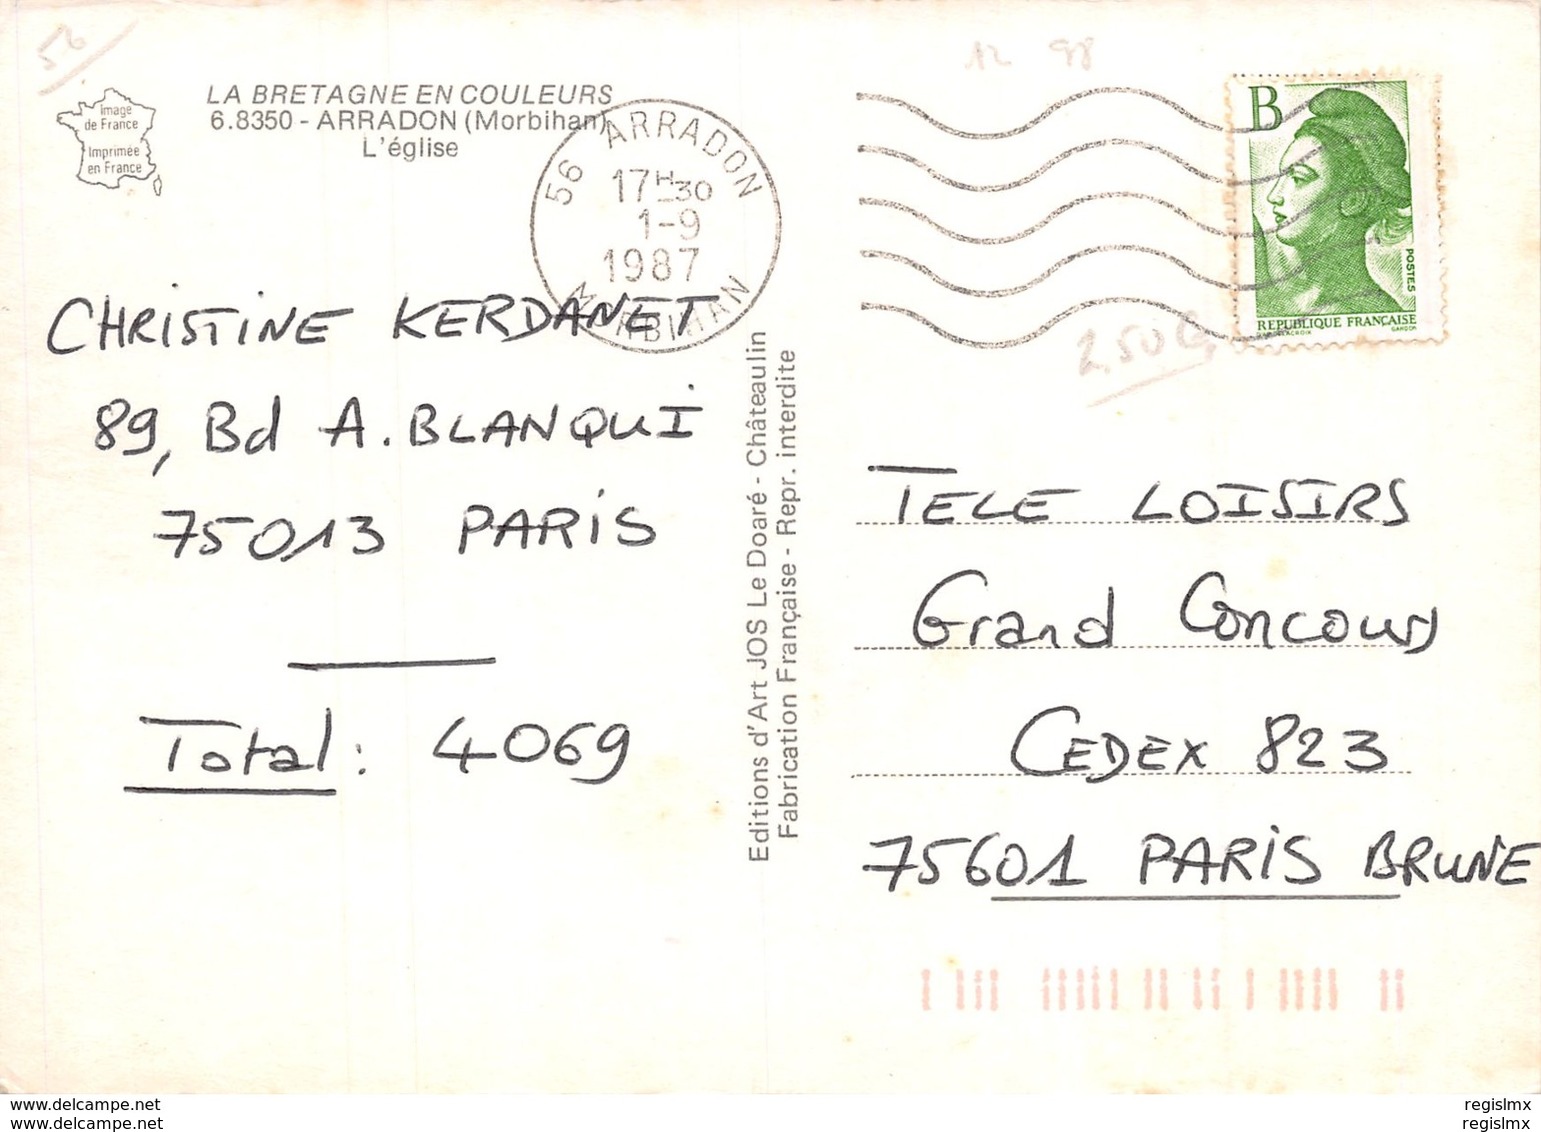 56
12 98
Image
de France
Imprimée
en France
LA BRETAGNE EN COULEURS
6.8350 - ARRADON (Morbihan)
L'église
56 ARRADON
17H30
1-9
1987
MORBIHAN
B
POSTES
REPUBLIQUE FRANÇAISE
GANDON
2.50
CHRISTINE KERDANET
89, Bd A. BLANQUI
75013 PARIS
Total : 4069
Editions d'Art JOS Le Doaré - Châteaulin
Fabrication Française - Repr. interdite
TELE LOISIRS
Grand Concours
CEDEX 823
75601 PARIS BRUNE
www.delcampe.net
www.delcampe.net
regislmx
regislmx